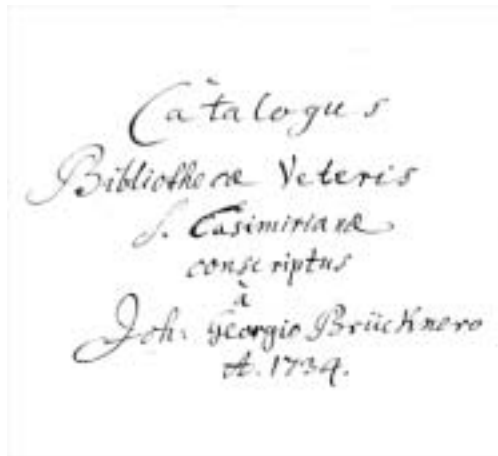 Catalogus
Bibliothecæ Veteris
s. Casimirianæ
conscriptus
à
Joh: Georgio Brücknero
A. 1734.